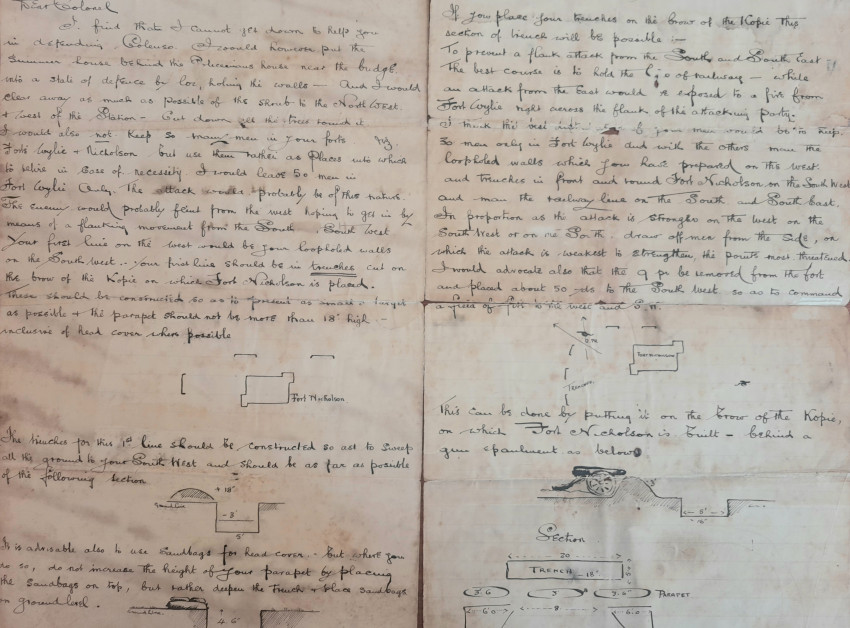 Dear Colonel
I find that I cannot get down to help you
in defending Colenso. I would however put the
Summer house behind the Policemans house near the bridge
into a state of defence by loop holing the walls — And I would
clear away as much as possible of the shrub to the North West.
& West of the Station - Cut down all the trees round it
I would also not keep so many men in your forts
Forts Wylie & Nicholson but use them rather as Places into which
to retire in case of necessity. I would leave 50 men in
Fort Wylie Only. The attack would probably be of this nature.
The Enemy would probably feint from the west hoping to get in by
means of a flanking movement from the South. South West
Your first line on the west would be your loopholed walls
on the South west - your first line should be in trenches cut on
the brow of the Kopie on which Fort Nicholson is placed.
These should be constructed so as to present as small a target
as possible & the parapet should not be more than 18" high -
inclusive of head cover where possible
Fort Nicholson
The trenches for this 1st line should be constructed so as to sweep
all the ground to your South West and should be as far as possible
of the following section
+ 18"
Ground line
- 3'
5'
It is advisable also to use Sandbags for head cover - but where you
do so, do not increase the height of your parapet by placing
the sandbags on top, but rather deepen the Trench & place sandbags
on ground level.
4.6"
If you place your trenches on the brow of the Kopie this
section of trench will be possible :-
To prevent a flank attack from the South and South East
The best course is to hold the line of railway — while
an attack from the East would be exposed to a fire from
Fort Wylie right across the flank of the attacking party.
I think the best of your men would be to keep
50 men only in Fort Wylie and with the others man the
loopholed walls which you have prepared on the west.
and trenches in front and round Fort Nicholson on the South West
and man the railway line on the South and South East.
In proportion as the attack is stronger on the west on the
South West or on the South. draw off men from the side, on
which the attack is weakest to strengthen the points most threatened.
I would advocate also that the 9 pr be removed from the fort
and placed about 50 yds to the South West so as to command
a field of fire to the west and S.W.
Fort Nicholson
Trenches
This can be done by putting it on the brow of the Kopie,
on which Fort Nicholson is built - behind a
gun epaulment as below
Section
20
TRENCH
18"
3.6
3
3.6
PARAPET
6.0
8
6.0